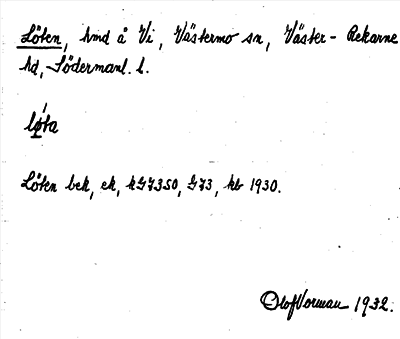 Löten, hmd å Vi, Västermo sn, Väster-Rekarne
hd, Södermanl. l.
lø̀ta
Löten bek, ek, kG7350, G73, kb 1930.
Olof Vorman 1932.